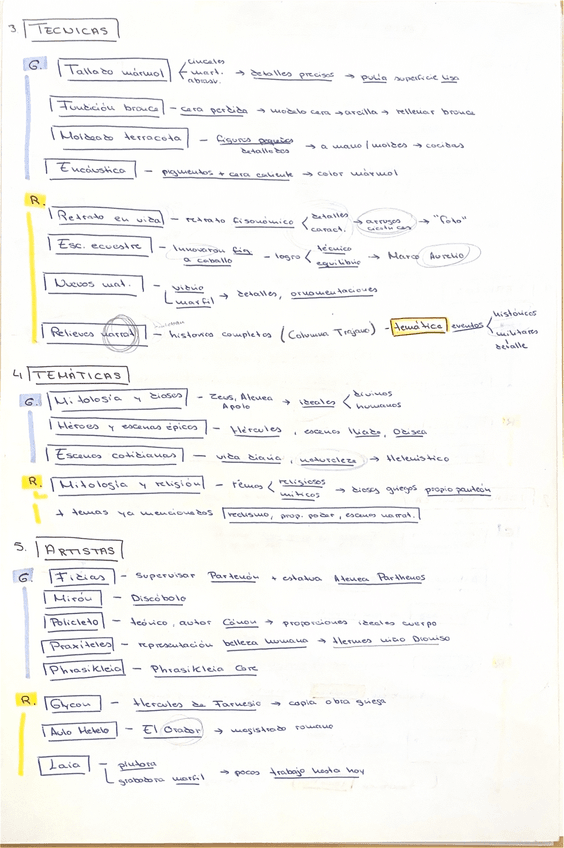 3 TECNICAS
G. Tallado mármol cinceles
mart.
abrasiv. → detalles precisos → pulía superficie lisa
Fundición bronce - cera perdida → modelo cera → arcilla → rellenar bronce
Moldeado terracota - figuras pequeñas
detallados → a mano/moldes → cocidas
Encáustica - pigmentos + cera caliente → color mármol
R.
Retrato en vida - retrato fisonómico detalles
caract. → arrugas
cicatrices → "foto"
Esc. ecuestre - Innovaron fig
a caballo - logro técnico
equilibrio → Marco Aurelio
Nuevos mat. - vidrio
marfil → detalles, ornamentaciones
Relieves narrat - historias completas (Columna Trajano) - temática eventos históricos
militares
detalle
4 TEMÁTICAS
G. Mitología y dioses - Zeus, Atenea
Apolo → ideales divinos
humanos
Héroes y escenas épicos - Hércules, escenas Iliada, Odisea
Escenas cotidianas - vida diaria, naturaleza → Helenístico
R. Mitología y religión - temas religiosos
míticos → dioses griegos propio panteón
+ temas ya mencionados realismo, prop. poder, escenas narrat.
5. ARTISTAS
G. Fidias - supervisar Partenón + estatua Atenea Parthenos
Mirón - Discóbolo
Policleto - teórico, autor Cánon → proporciones ideales cuerpo
Praxiteles - representación belleza humana → Hermes niño Dioniso
Phrasikleia - Phrasikleia Core
R. Glycon - Hercules de Farnesio → copia obra griega
Aulo Metelo - El Orador → magistrado romano
Laia - pintora
grabadora marfil → pocos trabajo hasta hoy